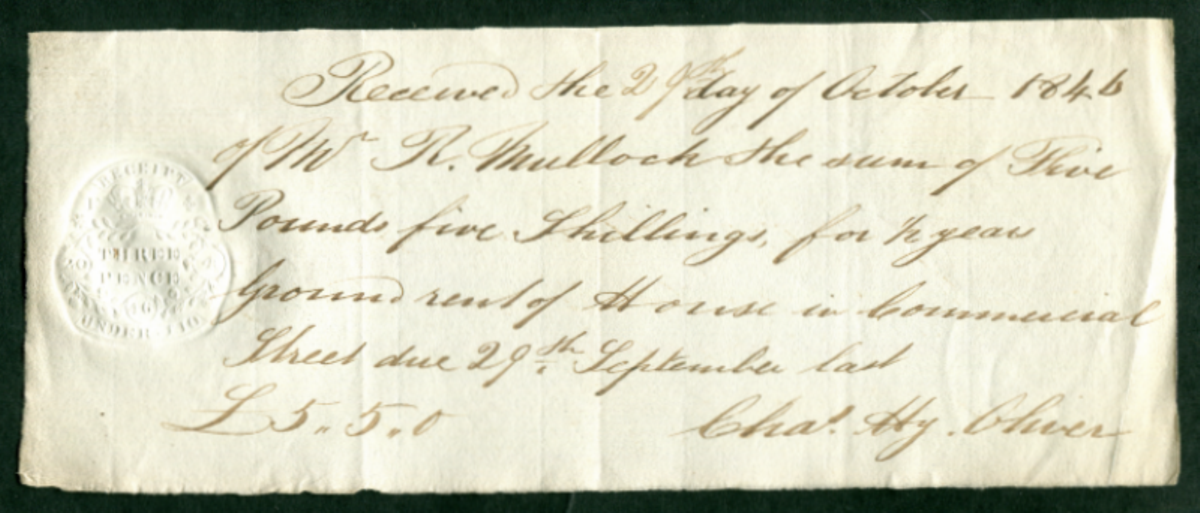 Received the 29th day of October 1846
of Mr R. Mullock the sum of Five
Pounds five Shillings, for ½ years
Ground rent of House in Commercial
Street due 29th September last
£5..5..0 Chas. Hy. Oliver
RECEIPT
THREE
PENCE
UNDER £10